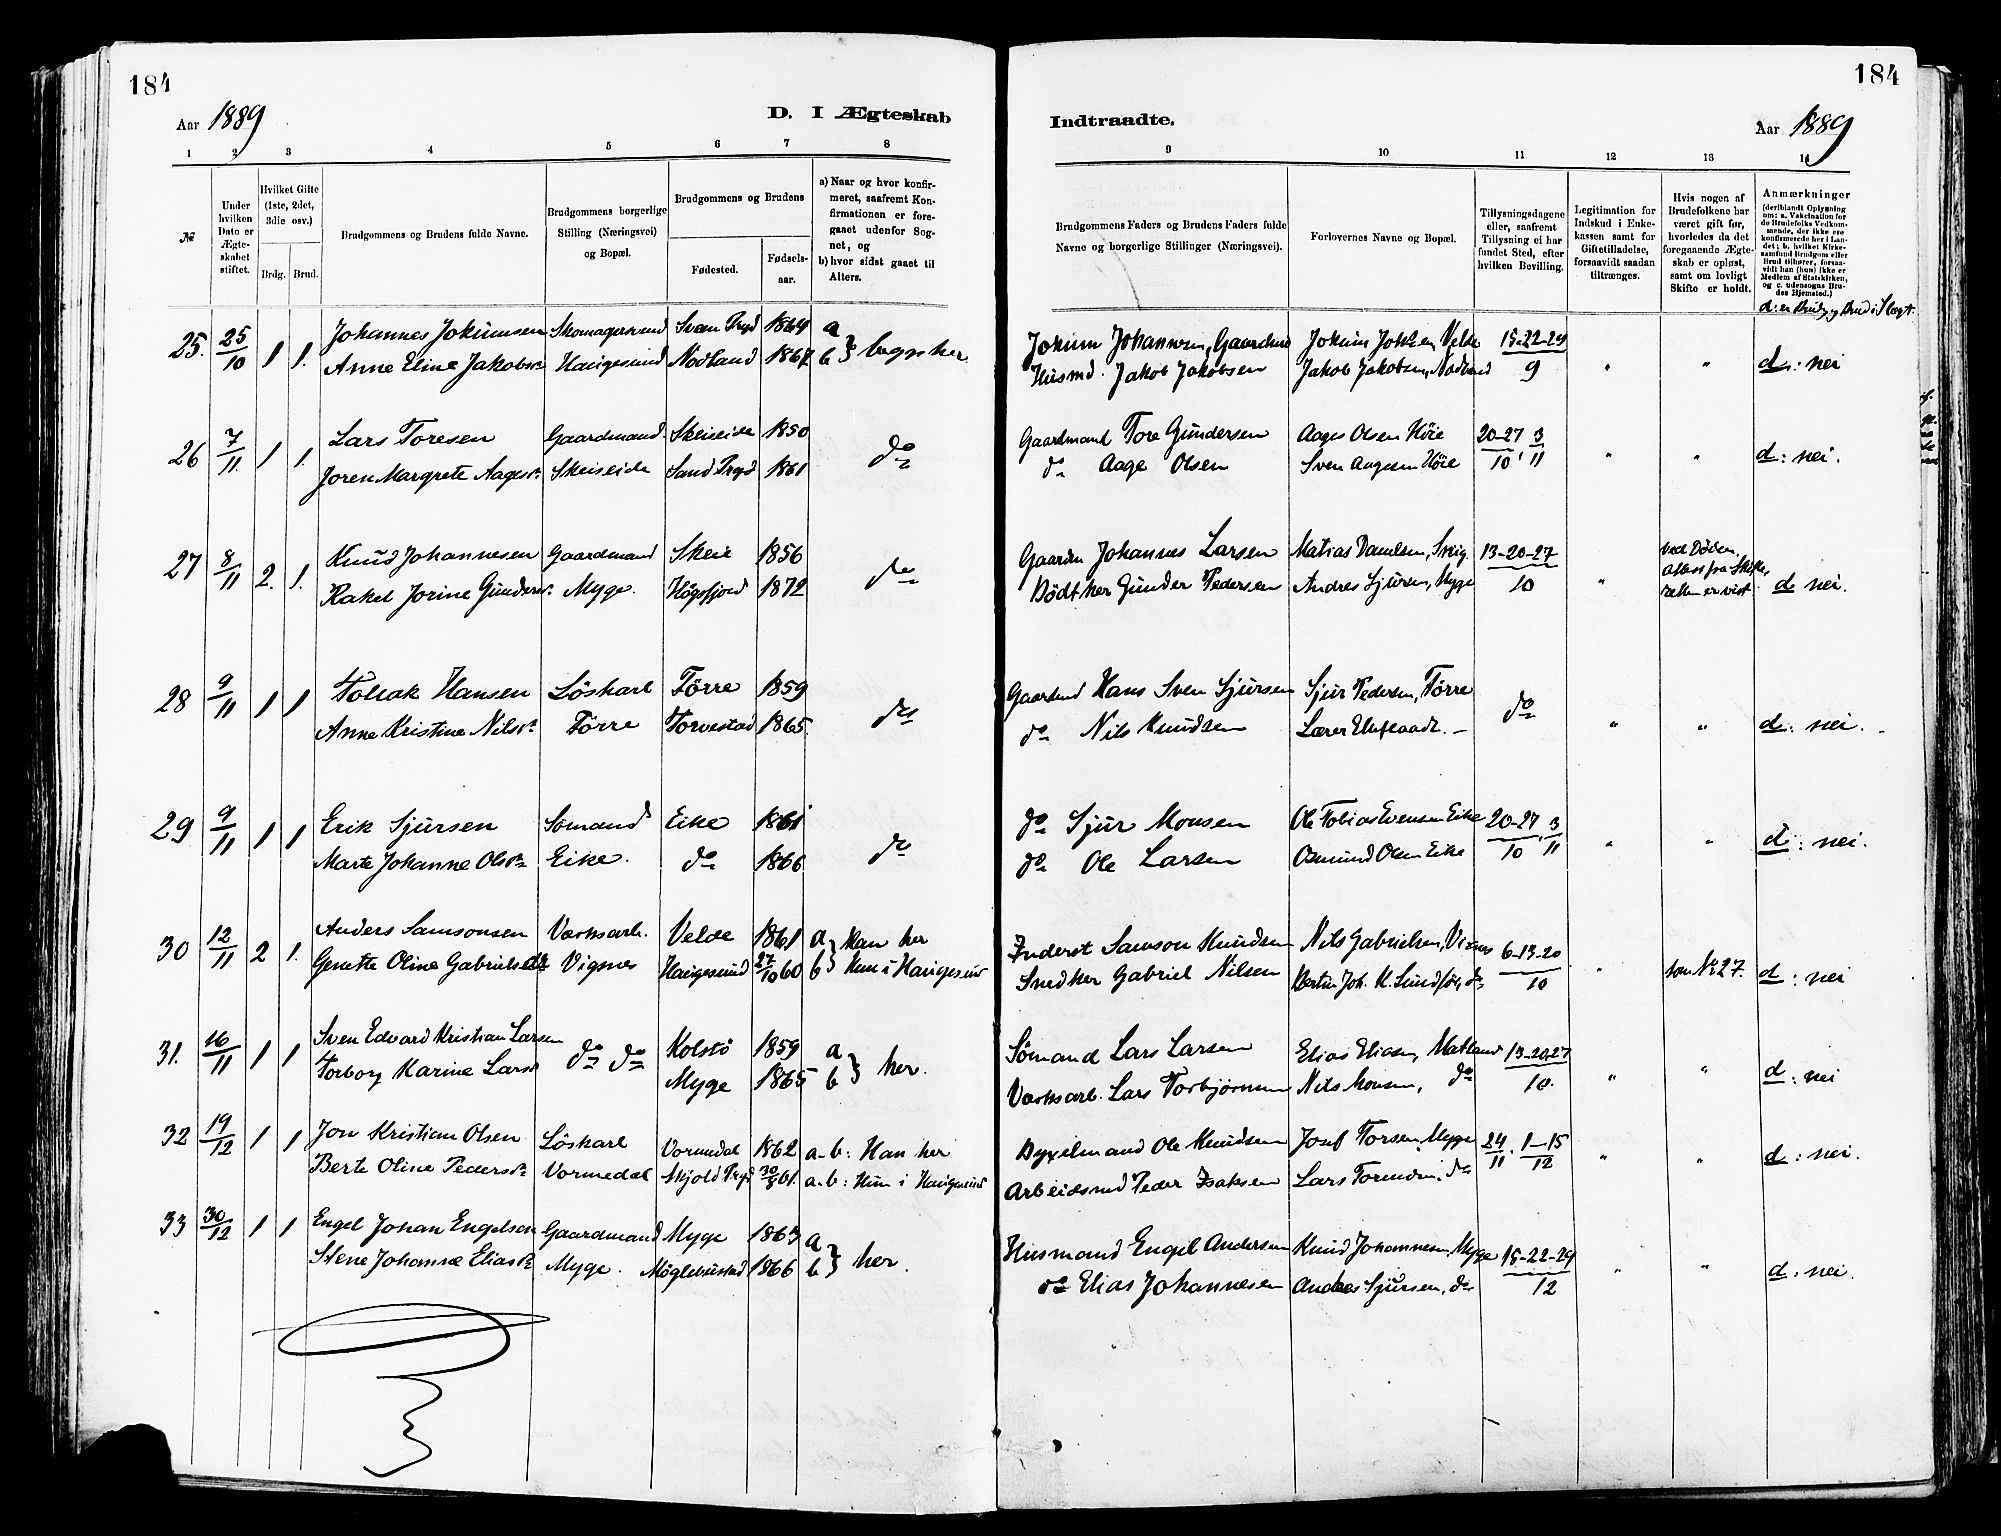 184
184
Aar 1889
D. I Ægteskab
Indtraadte.
Aar 1889
1 2 3 4 5 6 7 8
9 10 11 12 13 14
№
Under hvilken Dato er Ægteskabet stiftet.
Hvilket Gifte (1ste, 2det, 3die osv.)
Brdg. Brud.
Brudgommens og Brudens fulde Navne.
Brudgommens borgerlige Stilling (Næringsvei) og Bopæl.
Brudgommens og Brudens
Fødested.
Fødselsaar.
a) Naar og hvor konfirmeret, saafremt Konfirmationen er foregaaet udenfor Sognet, og
b) hvor sidst gaaet til Alters.
Brudgommens Faders og Brudens Faders fulde Navne og borgerlige Stillinger (Næringsvei).
Forlovernes Navne og Bopæl.
Tillysningsdagene eller, saafremt Tillysning ei har fundet Sted, efter hvilken Bevilling.
Legitimation for Indskud i Enkekassen samt for Giftetilladelse, forsaavidt saadan tiltrænges.
Hvis nogen af Brudefolkene har været gift før, hvorledes da det foregaaende Ægteskab er opløst, samt om lovligt Skifte er holdt.
Anmærkninger
(deriblandt Oplysning om: a. Vakcination for de Brudefolks Vedkommende, der ikke ere konfirmerede her i Landet; b. hvilket Kirkesamfund Brudgom eller Brud tilhører, forsaavidt han (hun) ikke er Medlem af Statskirken, og c. udensogns Brudes Hjemsted.)
d: er Brudg og Brud i Slægt.
25. 25/10 1 1. Johannes Jokumsen Skomagersvend Sveen Prgd 1864 a } begge her Jokum Johannesen, Gaardmd Jokum Johsen, Velde 15-22-29 " " d: nei
Anne Eline Jakobsd. Haugesund Nodland 1867 b Husmd. Jakob Jakobsen Jakob Jakobsen, Nodland 9
26 7/11 1 1. Lars Toresen Gaardmand Skeiseide 1850 do Gaardmand Tore Gundersen Aage Olsen Høie 20-27/10, 3/11 " " d: nei.
Joren Margrete Aagesd. Skeiseide Sand Prgd 1861 do Aage Olsen Sven Aagesen Høie
27 8/11 2. 1. Knud Johannesen Gaardmand Skeie 1856 do Gaardm Johannes Larsen Matias Danielsen, 13-20-27 " ved Døden.
Rakel Jorine Gundersd. Myge. Høgsfjord 1872 Dødt her Gunder Pedersen Andres Sjursen, Myge 10 Attest fra Skifteretten er vist d nei.
28 9/11 1 1 Tollak Hansen Löskarl Förre 1859 do Gaardmd Hans Sven Sjursen Sjur Pedersen, Förre do " " d: nei.
Anne Kristine Nilsd. Förre Torvestad 1865. do Nils Knudsen Lærer
29 9/11 1 1 Erik Sjursen Sømand Eike 1861 do do Sjur Monsen Ole Tobias Evensen Eike 20-27/10, 3/11 " " d: nei.
Marte Johanne Olsd. Eike. do 1866 do Ole Larsen Osmund Olsen Eike
30 12/11 2 1. Anders Samsonsen Værksarb. Velde 1861 a } Han her Inderst Samson Knudsen Nils Gabrielsen, Vignes 6-13-20 " som No 27. d: nei
Genette Oline Gabrielsd. Vignes Haugesund 27/10 60 b Hun i Haugesund Snedker Gabriel Nilsen Bertin Joh. K. Sundför, do 10
31. 16/11 1 1 Sven Edvard Kristian Larsen do do Kolstö 1859 a } her. Sømand Lars Larsen Elias Eliasen, Matland 13-20-27 " " d: nei
Torborg Karine Larsd. Myge 1865 b Værksarb. Lars Torbjørnsen Nils Monsen, do 10.
32 19/12 1 1 Jon Kristian Olsen Löskarl Vormedal 1862 a-b: Han her Ole Knudsen Josef Torsen, Myge 24/11. 1-15/12 " " d: nei.
Berte Oline Pedersd. Vormedal Skjold Prgd 61. a-b: Hun i Haugesund Arbeidsmd Peder Isaksen Lars do
33 30/12 1 1 Engel Johan Engelsen Gaardmand Myge 1863 a } her. Husmand Engel Andersen Knud Johannesen, Myge 15-22-29 " " d: nei.
Stene Johanne Eliasd. Myge. Möglebustad 1866 b do Elias Johannesen Andres Sjursen, do 12